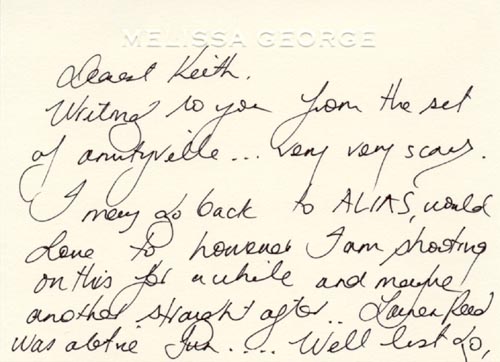 MELISSA GEORGE
Dearest Keith.
Writing to you from the set
of amityville... very very scary.
I may go back to ALIAS, would
love to however I am shooting
on this for a while and maybe
another straight after.. Lauren Reed
was alot fun.... We'll